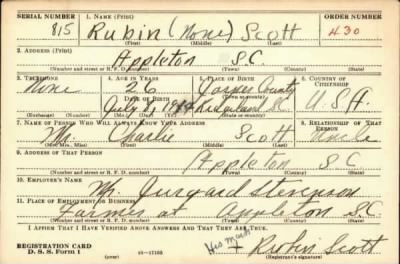 SERIAL NUMBER 1. NAME (Print) ORDER NUMBER
815 Rubin (None) Scott 430
(First) (Middle) (Last)
2. ADDRESS (Print)
Appleton S.C.
(Number and street or R. F. D. number) (Town) (County) (State)
3. TELEPHONE 4. AGE IN YEARS 5. PLACE OF BIRTH 6. COUNTRY OF CITIZENSHIP
None 26 Jasper County
DATE OF BIRTH
July 8, Ridgeland S.C. U.S.A.
(Exchange) (Number) (Mo.) (Day) (Yr.) (State or country)
7. NAME OF PERSON WHO WILL ALWAYS KNOW YOUR ADDRESS 8. RELATIONSHIP OF THAT PERSON
Mr. Charlie Scott Uncle
(Mr., Mrs., Miss) (First) (Middle) (Last)
9. ADDRESS OF THAT PERSON
Appleton S C
(Number and street or R. F. D. number) (Town) (County) (State)
10. EMPLOYER'S NAME
Mr. Stevenson
11. PLACE OF EMPLOYMENT OR BUSINESS
Farmer at Appleton S.C.
(Number and street or R. F. D. number) (Town) (County) (State)
I AFFIRM THAT I HAVE VERIFIED ABOVE ANSWERS AND THAT THEY ARE TRUE.
His mark
REGISTRATION CARD
D. S. S. Form 1 16-17105 + Rubin Scott
(Registrant's signature)